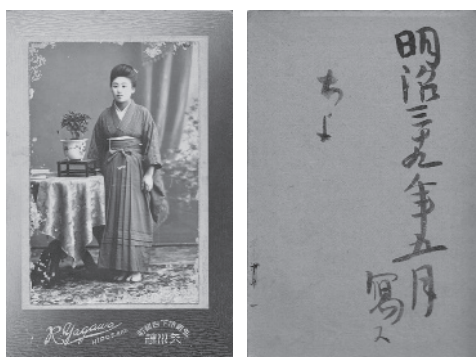 R. Yagawa
HIROSAKI
明治三十九年五月
寫ス
ちよ